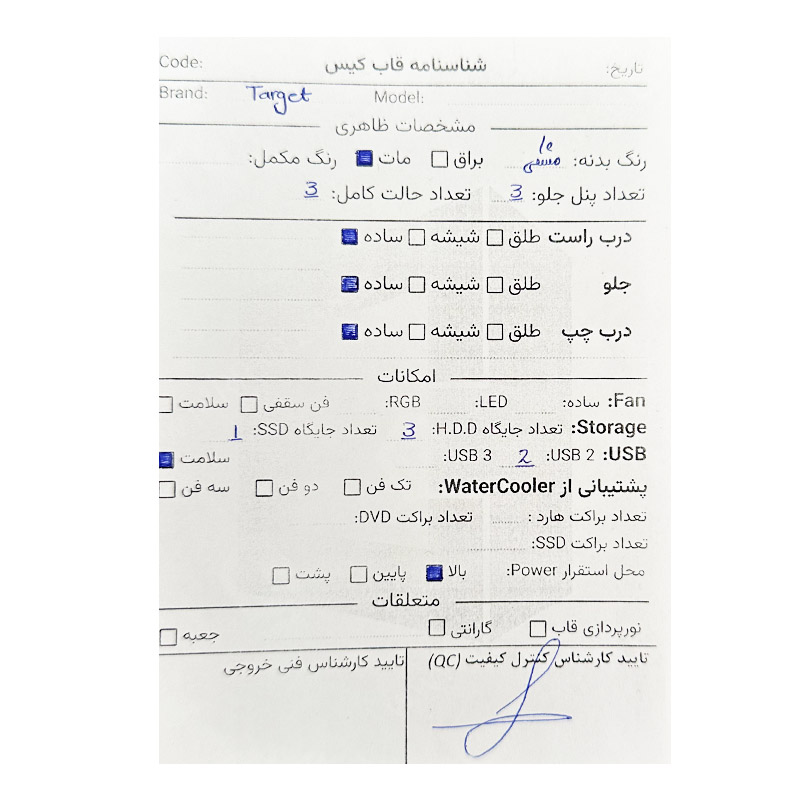 تاریخ: شناسنامه قاب کیس Code:
Brand: Target Model:
مشخصات ظاهری
رنگ بدنه: مشکی براق مات رنگ مکمل:
تعداد پنل جلو: 3 تعداد حالت کامل: 3
درب راست طلق شیشه ساده
جلو طلق شیشه ساده
درب چپ طلق شیشه ساده
امکانات
Fan: ساده: LED: RGB: فن سقفی سلامت
Storage: تعداد جایگاه H.D.D: 3 تعداد جایگاه SSD: 1
USB: USB 2: 2 USB 3: سلامت
پشتیبانی از WaterCooler: تک فن دو فن سه فن
تعداد براکت هارد : تعداد براکت DVD:
تعداد براکت SSD:
محل استقرار Power: بالا پایین پشت
متعلقات
نورپردازی قاب گارانتی جعبه
تایید کارشناس کنترل کیفیت (QC) تایید کارشناس فنی خروجی